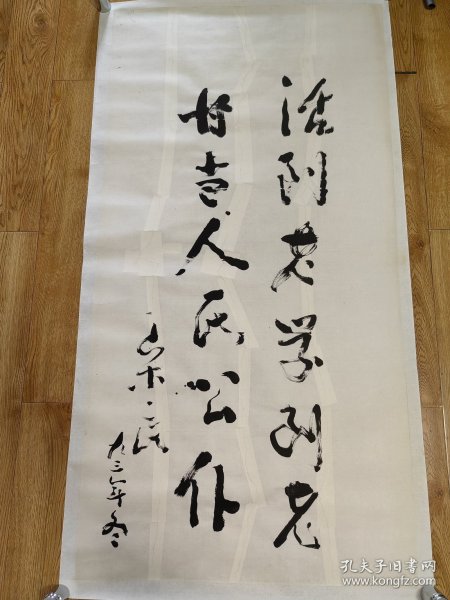 活到老学到老
甘当人民公仆
九三年冬
孔夫子旧书网
www.kongfz.com